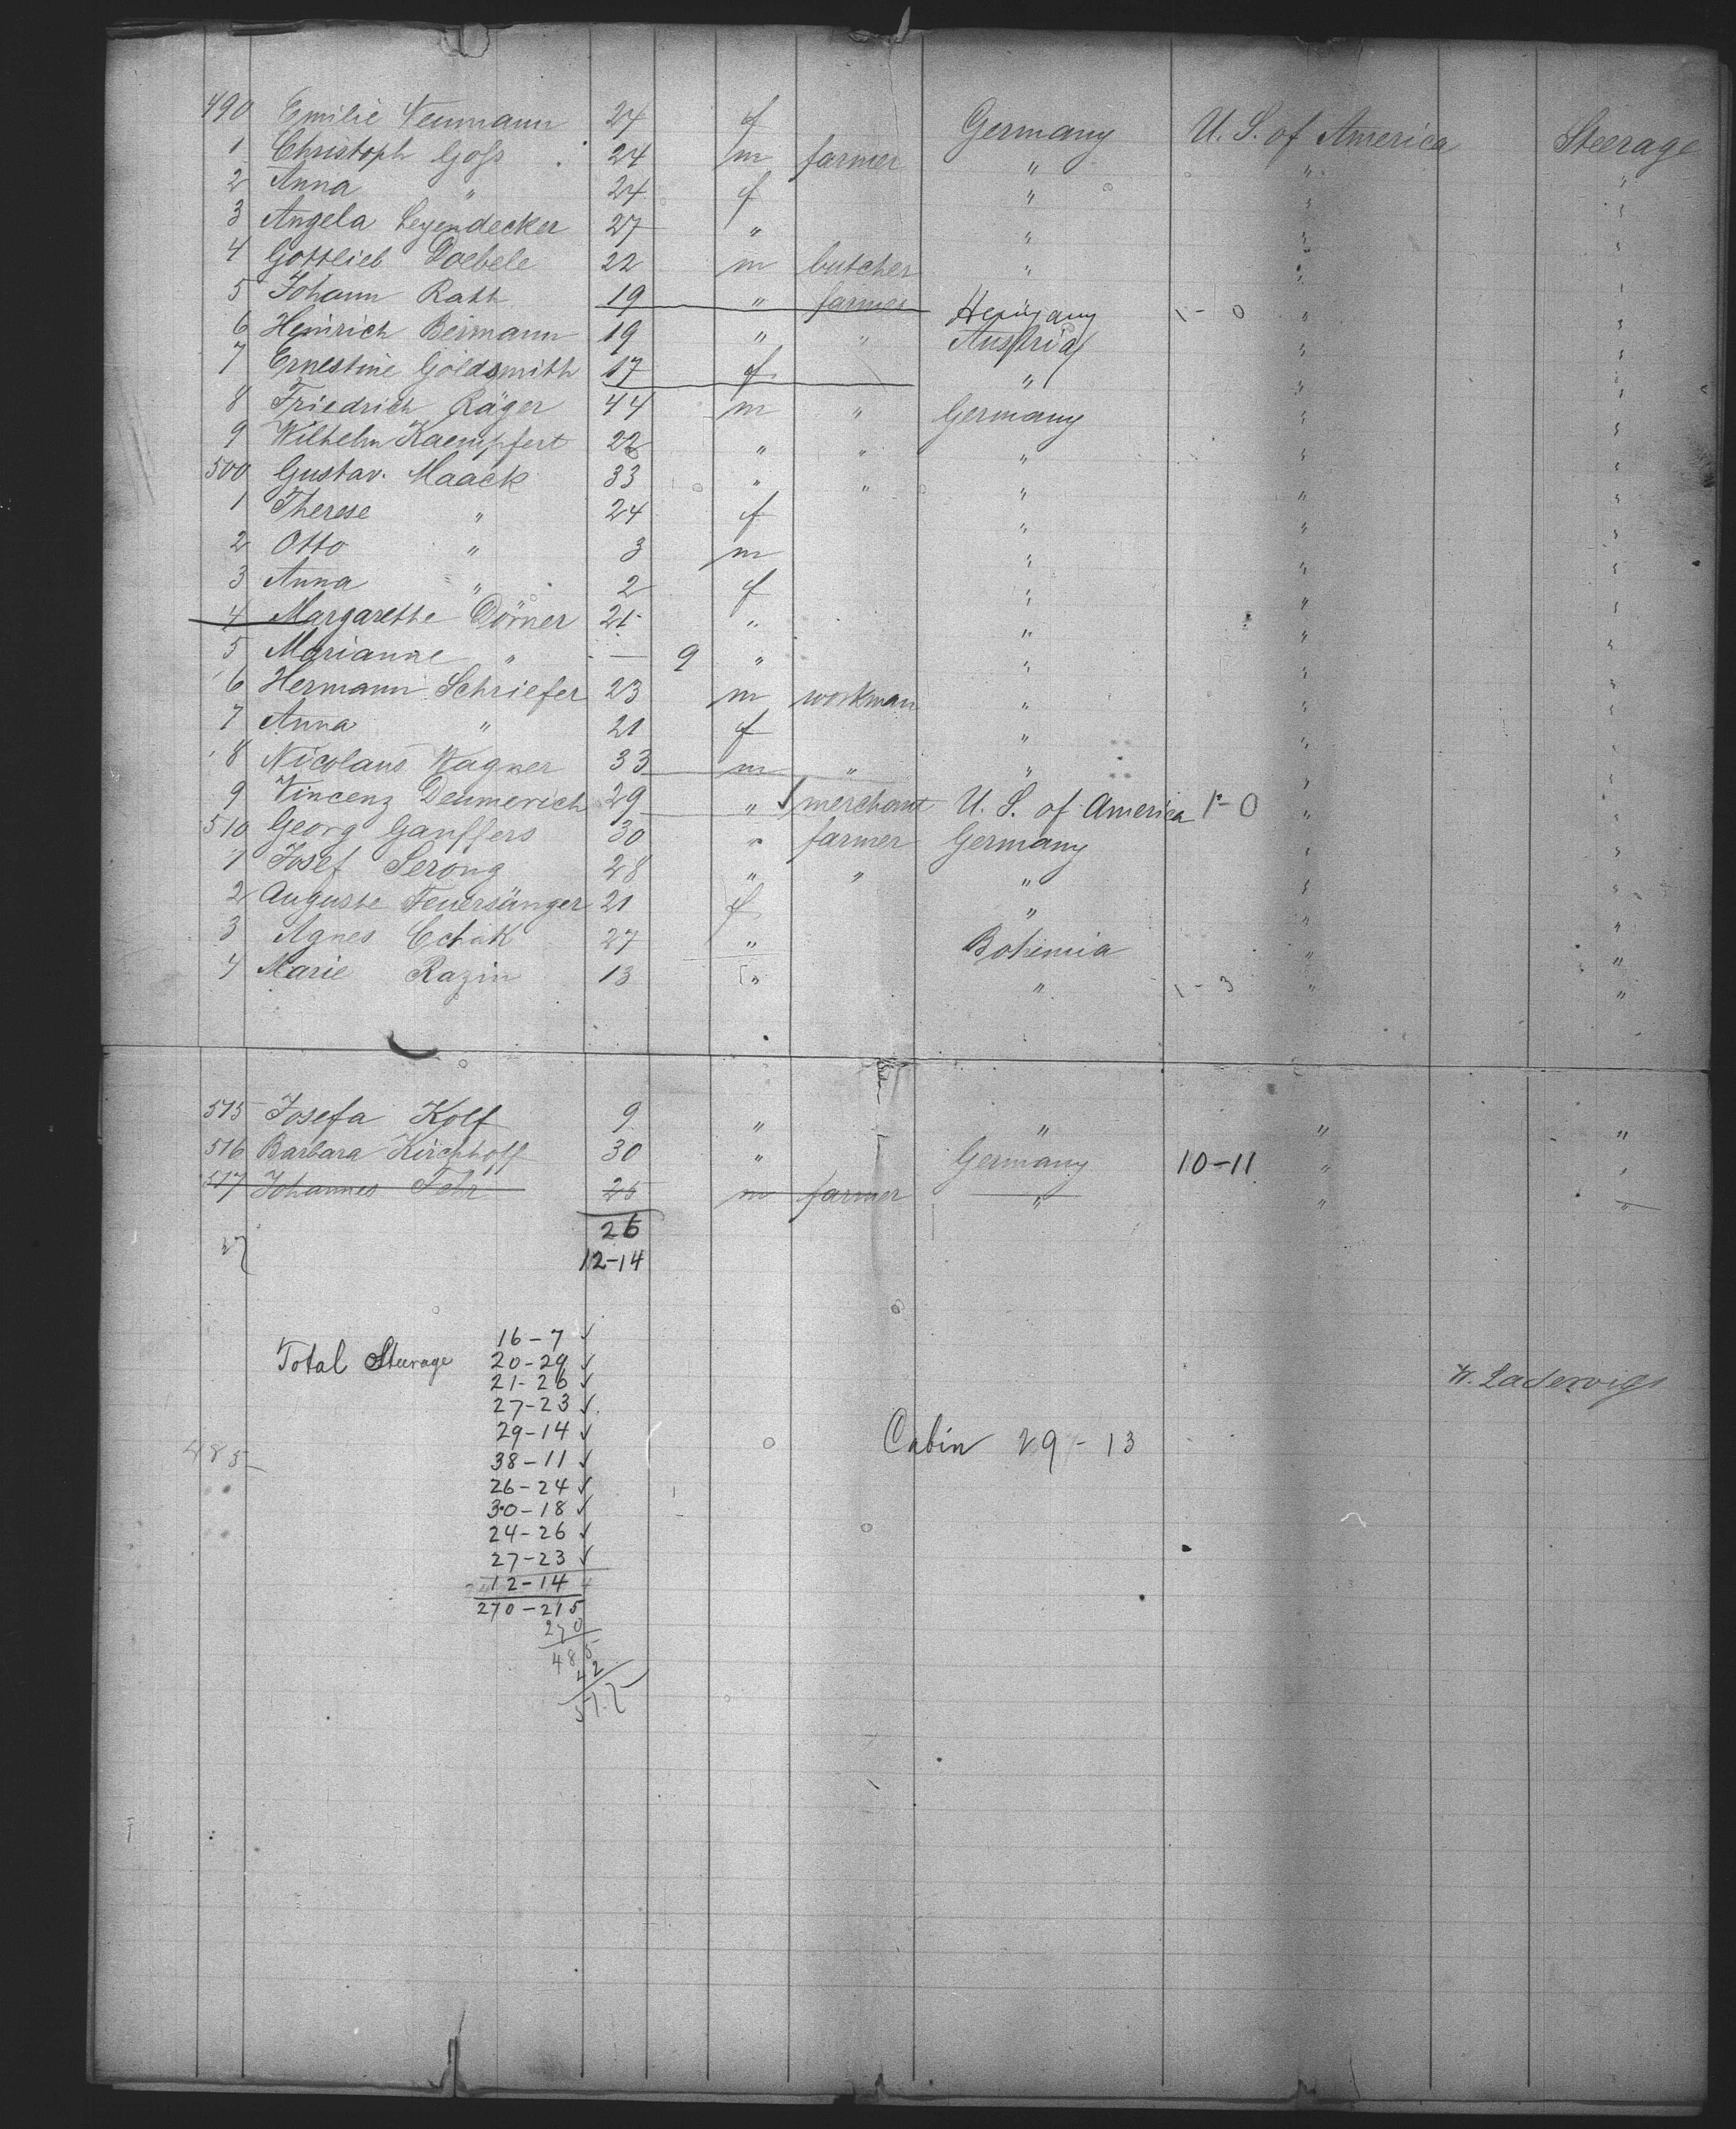 490 Emilie Neumann 24 f Germany U. S. of America Steerage
1 Christoph Goss 24 m farmer " " "
2 Anna " 24 f " " "
3 Angela Leyendecker 27 " " " "
4 Gottlieb Doebele 22 m butcher " " "
5 Johann Rath 19 " farmer 1-0 " "
6 Heinrich Beimann 19 " " Austria " "
7 Ernestine Goldsmith 17 f " " "
8 Friedrich Räger 44 m " Germany " "
9 Wilhelm Kaempfert 22 " " " " "
500 Gustav. Maack 33 " " " " "
1 Therese " 24 f " " "
2 Otto " 3 m " " "
3 Anna " 2 f " " "
4 Margarethe Dörner 21 " " " "
5 Marianne " — 9 " " " "
6 Hermann Schriefer 23 m workman " " "
7 Anna " 21 f " " "
8 Nicolaus Wagner 33 m " " " "
9 Vincenz Deumerich 29 " merchant U. S. of America 1-0 " "
510 Georg Ganffers 30 " farmer Germany " "
1 Josef Serong 28 " " " " "
2 Auguste Feuersänger 21 f " " "
3 Agnes Echak 27 " Bohemia " "
4 Marie Razin 13 " " 1-3 " "
515 Josefa Kolf 9 " " " "
516 Barbara Kirchhoff 30 " Germany 10-11 " "
517 Johannes Fehr 25 m farmer " " "
26
27 12-14
16-7
Total Steerage 20-29
21-26
27-23
29-14
W. Ladewigs
Cabin 29-13
485
38-11
26-24
30-18
24-26
27-23
12-14
270-215
270
485
42
517